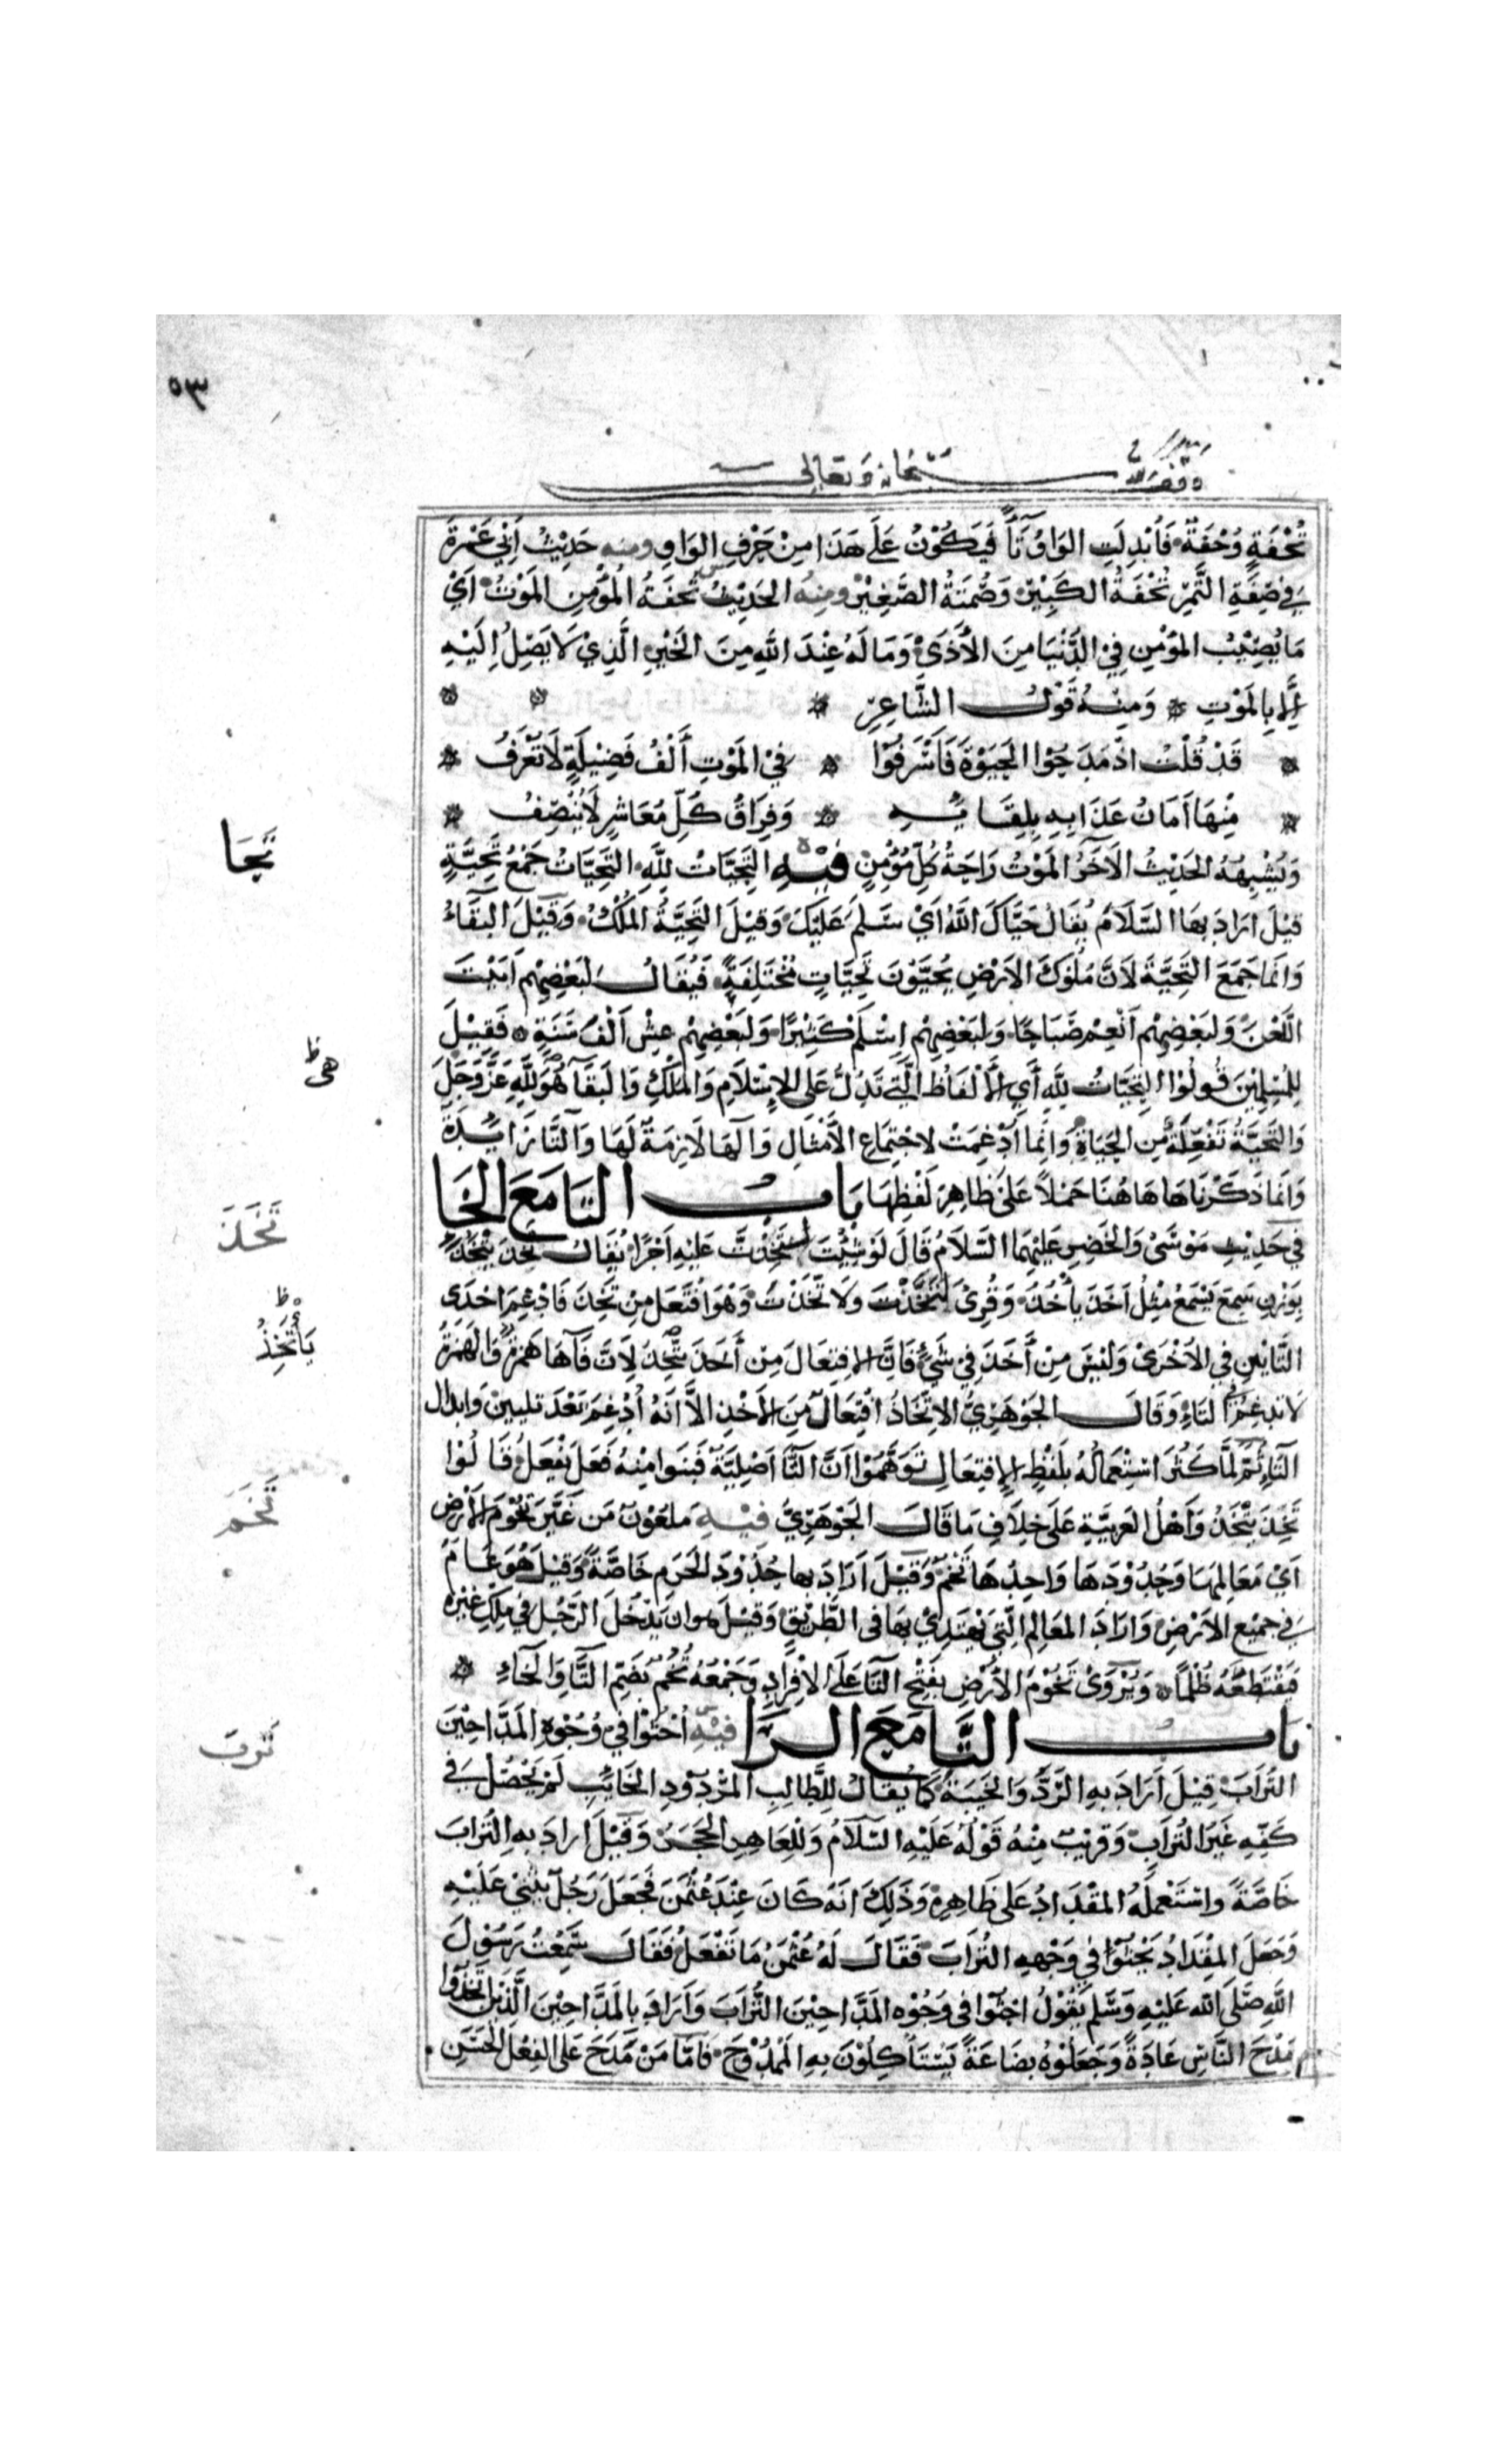 ٥٣
وقف لله سبحانه وتعالى
تُحْفَةٍ وُحَفَةٌ فَأُبْدِلَتِ الوَاوُ تَآءً فَيَكُوْنُ عَلَى هَذَا مِنْ حَرْفِ الوَاوِ ومنه حَدِيْثُ أَبِي عَمْرَةَ
فِي صِفَةِ التَّمْرِ تُحْفَةُ الكَبِيْرِ وَصُمْتَةُ الصَّغِيْرِ ومِنْهُ الحَدِيْثُ تُحْفَةُ المُؤْمِنِ المَوْتُ أَيْ
مَا يُصِيْبُ المؤْمِنِ فِي الدُّنْيَا مِنَ الأَذَى وَمَا لَهُ عِنْدَ اللهِ مِنَ الخَيْرِ الَّذِيْ لَا يَصِلُ إِلَيْهِ
إِلَّا بِالمَوْتِ وَمِنْهُ قَوْلُ الشَّاعِرِ
قَدْ قُلْتُ اذْ مَدَحُوْا الحَيَوةَ فَأَسْرَفُوْا فِيْ المَوْتِ أَلْفُ فَضِيْلَةٍ لَا تُعْرَفُ
مِنْهَا أَمَانُ عَذَابِهِ بِلِقَايِهِ وَفِرَاقُ كُلِّ مُعَاشِرٍ لَا يُنْصِفُ
تَحَيَا
وَيُشْبِهُهُ الحَدِيْثُ الآخَرُ المَوْتُ رَاحَةُ كُلِّ مُؤْمِنٍ فِيْهِ التَّحِيَّاتُ لِلَّهِ التَّحِيَّاتُ جَمْعُ تَحِيَّةٍ
قِيْلَ ارَادَ بِهَا السَّلَامَ يُقَالُ حَيَّاكَ اللَّهُ أَيْ سَلَّمَ عَلَيْكَ وَقِيْلَ التَّحِيَّةُ المُلْكُ وَقِيْلَ البَقَاءُ
وَانَّمَا جَمَعَ التَّحِيَّةَ لَانَّ مُلُوْكَ الاَرْضِ يُحَيَّوْنَ تَحِيَّاتٍ مُخْتَلِفَةٍ فَيُقَالُ لِبَعْضِهِمْ أَبَيْتَ
اللَّعْنَ وَلبَعْضِهِمْ انْعِمْ صَبَاحًا وَلبَعْضِهِمْ اِسْلَمْ كَثِيْرًا وَلبَعْضِهِمْ عِشْ اَلْفَ سَنَةٍ فَقِيْلَ
هي ظ
لِلْمُسْلِمِيْنَ قُولُوْا التَّحِيَّاتُ لِلَّهِ أَيِ الأَلْفَاظُ الَّتِي تَدُلُّ عَلَى الاِسْلَامِ وَالمُلْكِ وَالبَقَآءِ هُوَ لِلَّهِ عَزَّ وَجَلَّ
وَالتَّحِيَّةُ تَفْعِلَةٌ مِن الحَيَاةِ وَانَّمَا أُدْغِمَتْ لاجْتِمَاعِ الأَمْثَالِ وَالهَا لَازِمَةٌ لَهَا وَالتَّا زَايِدَةٌ
وَانَّمَا ذَكَرْنَاهَا هَاهُنَا حَمْلاً عَلَى ظَاهِرِ لَفْظِهَا بَابُ التَّا مَعَ الخَا
تَخَذَ
فِي حَدِيْثِ مُوْسَى وَالخَضِرِ عَلَيْهِمَا السَّلَامُ قَالَ لَوْ شِئْتَ لتَّخَذْتَ عَلَيْهِ أَجْرًا يُقَالُ تَخِذَ يَتْخَذُ
بوَزْنِ سَمِعَ يَسْمَعُ مِثْلُ أَخَذَ يَأْخُذُ وَقُرِئَ لَتَخِذْتَ وَلَاتَّخَذْتَ وَهْوَ افْتَعَلَ مِنْ تَخِذَ فَادْغِمَ احْدَى
يأتَخِذُ ظ
التَّاءَيْنِ فِي الاُخْرَى وَلَيْسَ مِنْ أَخَذَ فِيْ شَيْءٍ فَانَّ الافتِعَالَ مِنْ أَخَذَ يتَّخِذُ لِانَّ فَآءَهَا هَمْزَةٌ وَالهَمْزَةُ
لاتدغم فِي التَاءِ وَقَالَ الجَوْهَرِيُّ الاِتِّخَاذُ افْتِعَالٌ مِنَ الأَخْذِ الاَّ انَّهُ أُدْغِمَ بَعْدَ تليين وَابدال
التَآءِ ثُمَّ لَمَّا كَثُرَ اسْتِعْمَالُهُ بلَفْظِ الاِفتِعَالِ تَوَهَّمُوْا انَّ التَّا اَصْلِيَّةٌ فَبَنَوا مِنْهُ فَعِلَ يَفْعَلُ قَالُوْا
تَخِذَ يَتْخَذُ وَأَهْلُ العَرَبِيَّةِ عَلَى خِلَافِ مَا قَالَ الجَوْهَرِيُّ فيْهِ مَلعُوْنٌ مَن غَيَّرَ تُخُوْمَ الاَرْضِ
تَخَمَ
اَيْ مَعَالِمَهَا وَحُدُوْدَهَا وَاحِدُهَا تُخْمٌ وَقِيْلَ ارَادَ بِها حُدُوْدَ الحَرَمِ خَاصَّةً وَقِيْلَ هُوَ عَامٌّ
فِي جَمِيْعِ الاَرْضِ وَارَادَ المَعَالِمَ الَّتِي يُهْتَدِيْ بِهَا فى الطَّرِيْقِ وَقِيْلَ هو ان يَدْخُلَ الرَّجُل فِي مِلْكِ غَيْرِهِ
فَيَقْتَطِعُهُ ظُلْمًا وَيُرْوَى تَخُوْمَ الأَرْضِ بِفَتْحِ التَّا عَلَى الاِفْرادِ وَجَمْعُهُ تُخُمٌ بِضَمِّ التَّا وَالخَاءِ
بَابُ التَّا مَعَ الرَّا فِيْهِ اُحْثُوْا فِيْ وُجُوْهِ المَدَّاحِيْنَ
تَرَبَ
التُرَابَ قِيْلَ أَرَادَ بِهِ الرَّدَّ وَالخَيْبَةَ كَمَا يُقَالُ لِلطَّالِبِ المَرْدُوْدِ الخَايِبِ لَمْ يَحْصُلْ فِي
كَفِّهِ غَيْرَ التُرَابِ وَقرِيْبٌ مِنْهُ قَوْلُهُ عَلَيْهِ السَّلَامُ وَلِلْعَاهِرِ الحَجَرُ وَقِيْلَ ارادَ بِهِ التُرَابَ
خَاصَّةً وَاسْتَعْمَلَهُ المِقْدَادُ عَلَى ظَاهِرِهِ وَذَلِكَ انَّهُ كَانَ عِنْدَ عُثْمٰنَ فَجَعَلَ رَجُلٌ يُثْنِيْ عَلَيْهِ
وَجَعَلَ المِقْدَادُ يَحْثُوْا فِي وَجْهِهِ التُّرَابَ فَقَالَ لَهُ عُثْمٰنُ مَا تَفْعَلُ فَقَالَ سَمِعْتُ رَسُوْلَ
اللَّهِ صَلَّى اللَّه عَلَيْهِ وَسَلَّم يَقُوْلُ احْثُوْا فِي وُجُوْهِ المَدَّاحِيْنَ التُّرَابَ وَأَرَادَ بِالمَدَّاحِيْنَ الَّذِيْنَ اتَّخَذُوْا
مَدْحَ النَّاسِ عَادَةً وَجَعَلُوْهُ بضَاعَةً يَسْتَأْكِلُوْنَ بِهِ المَمْدُوْحَ فَامَّا مَنْ مَدَحَ عَلَى الفِعْلِ الحَسَنِ